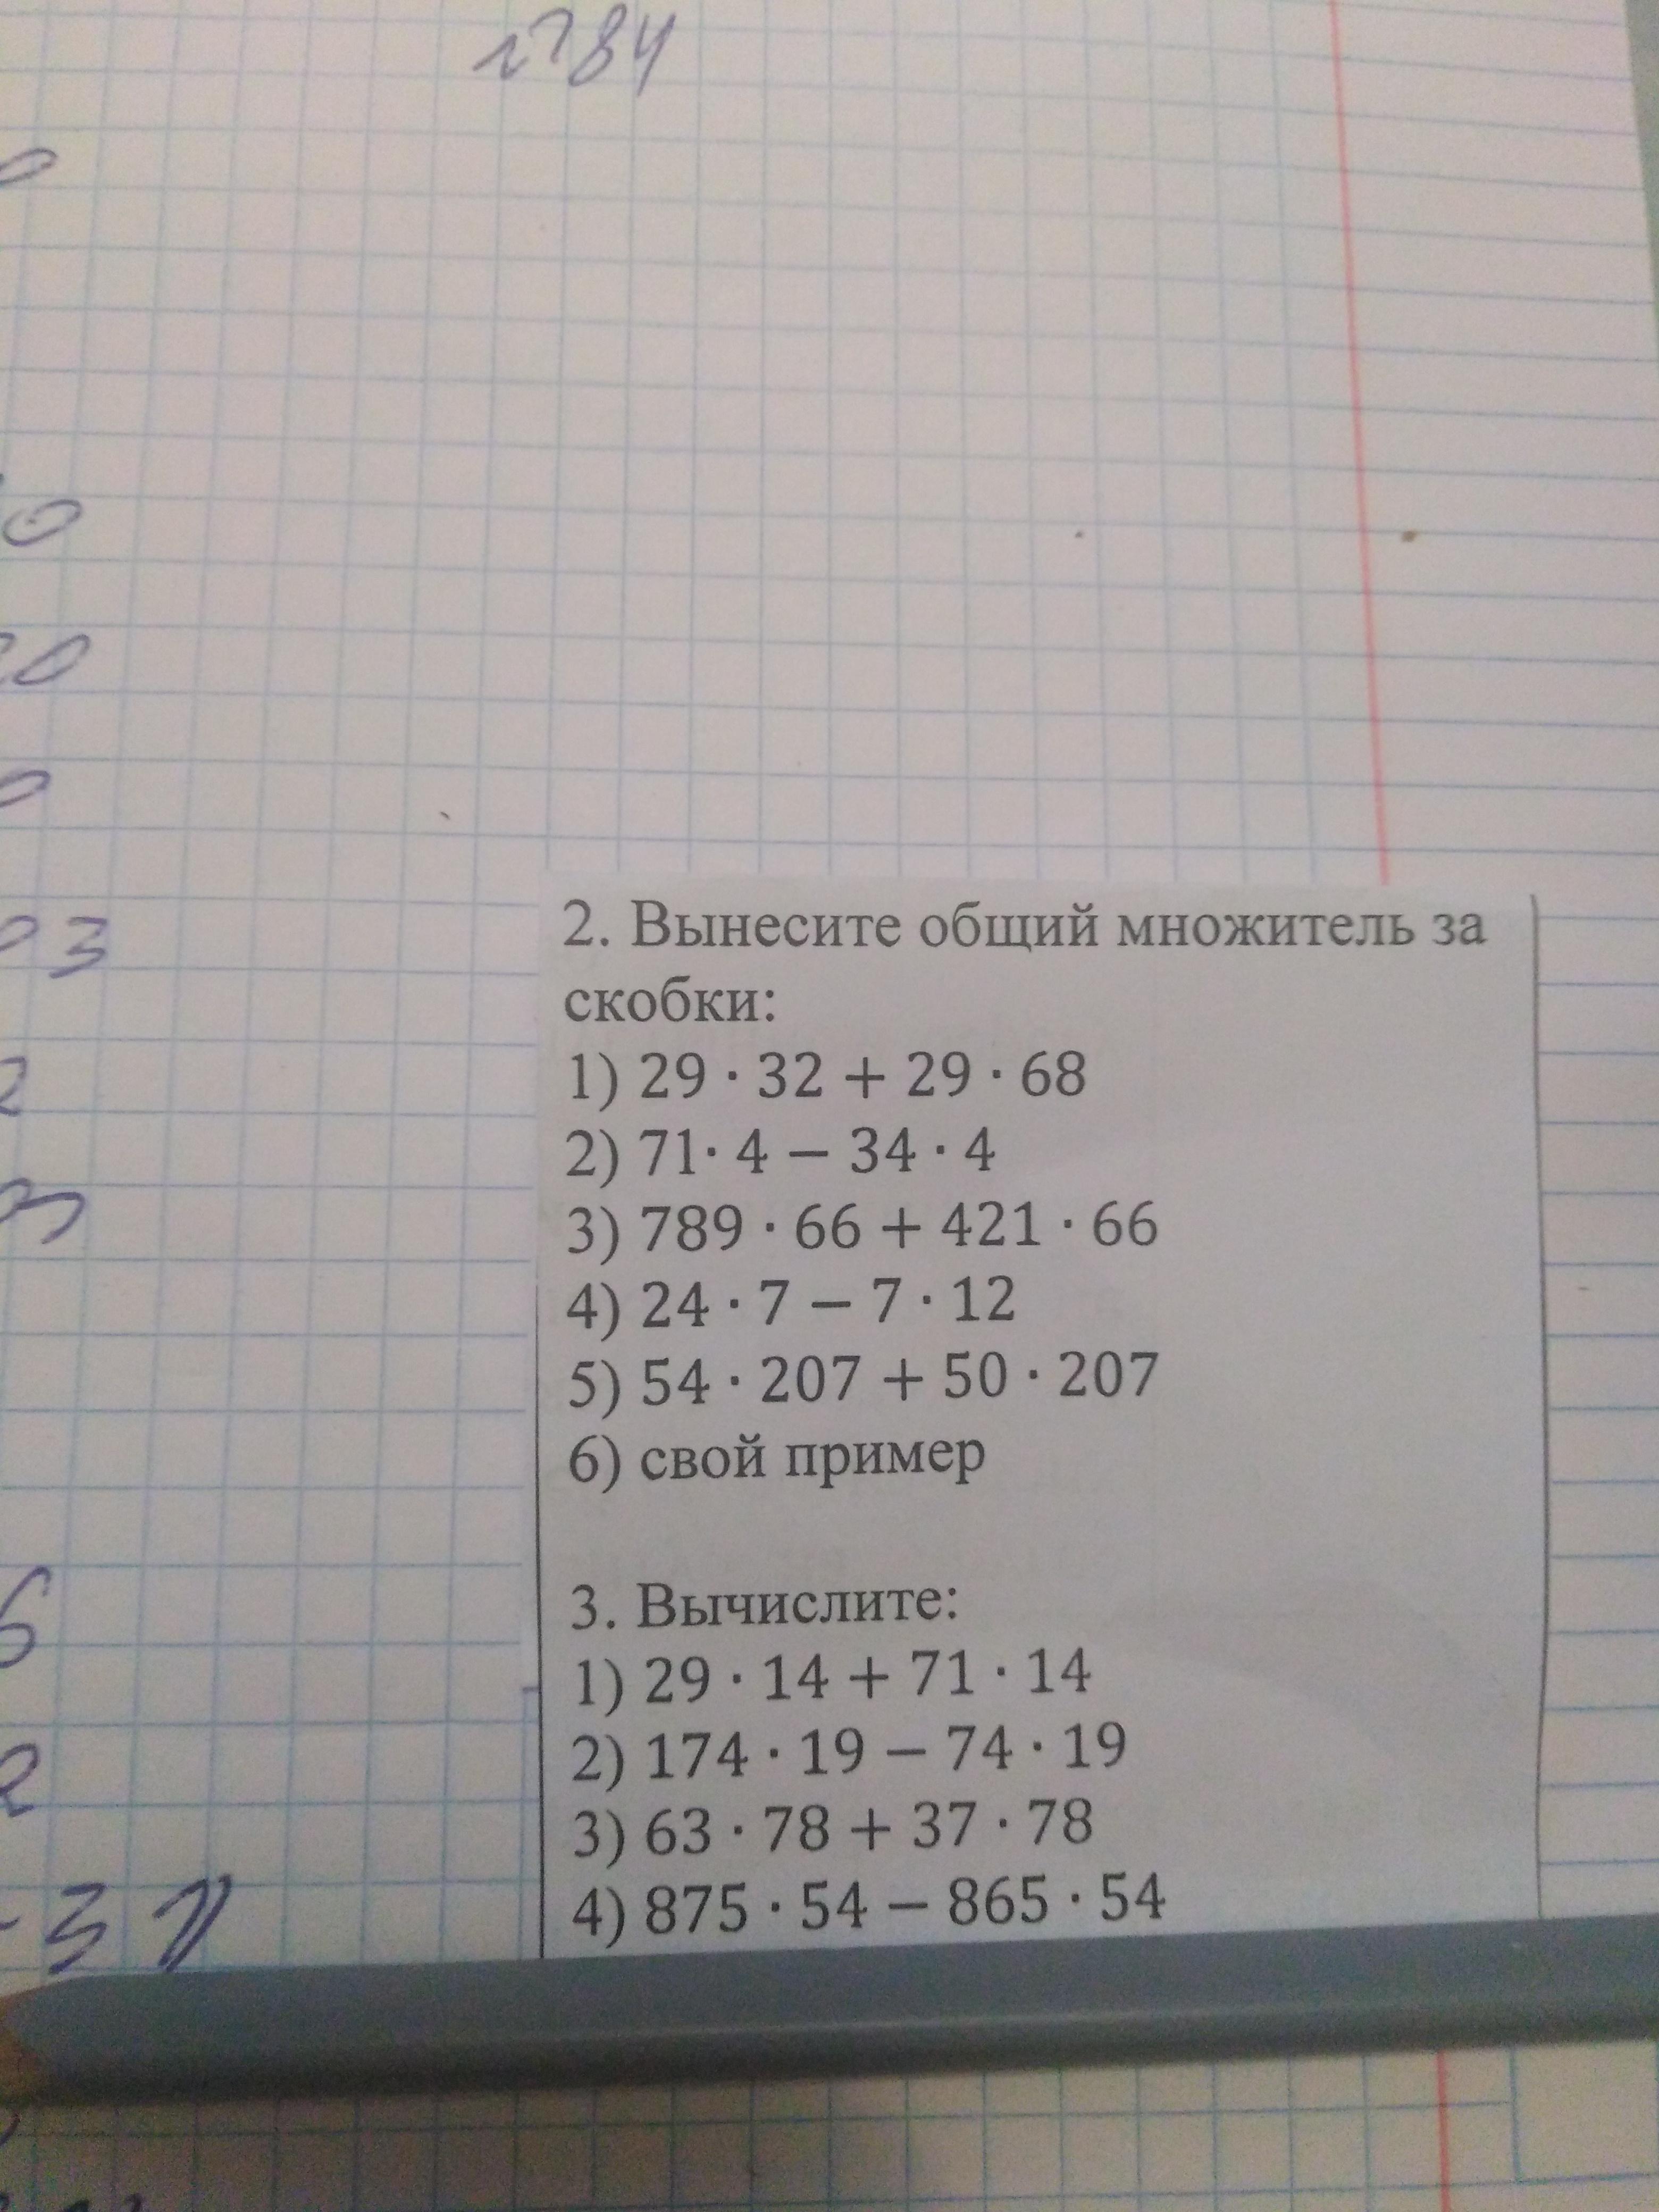 №84
03
2. Вынесите общий множитель за
скобки:
1) 29 · 32 + 29 · 68
2) 71· 4 − 34 · 4
3) 789 · 66 + 421 · 66
4) 24 · 7 − 7 · 12
5) 54 · 207 + 50 · 207
6) свой пример
3. Вычислите:
1) 29 · 14 + 71 · 14
2) 174 · 19 − 74 · 19
3) 63 · 78 + 37 · 78
4) 875 · 54 − 865 · 54